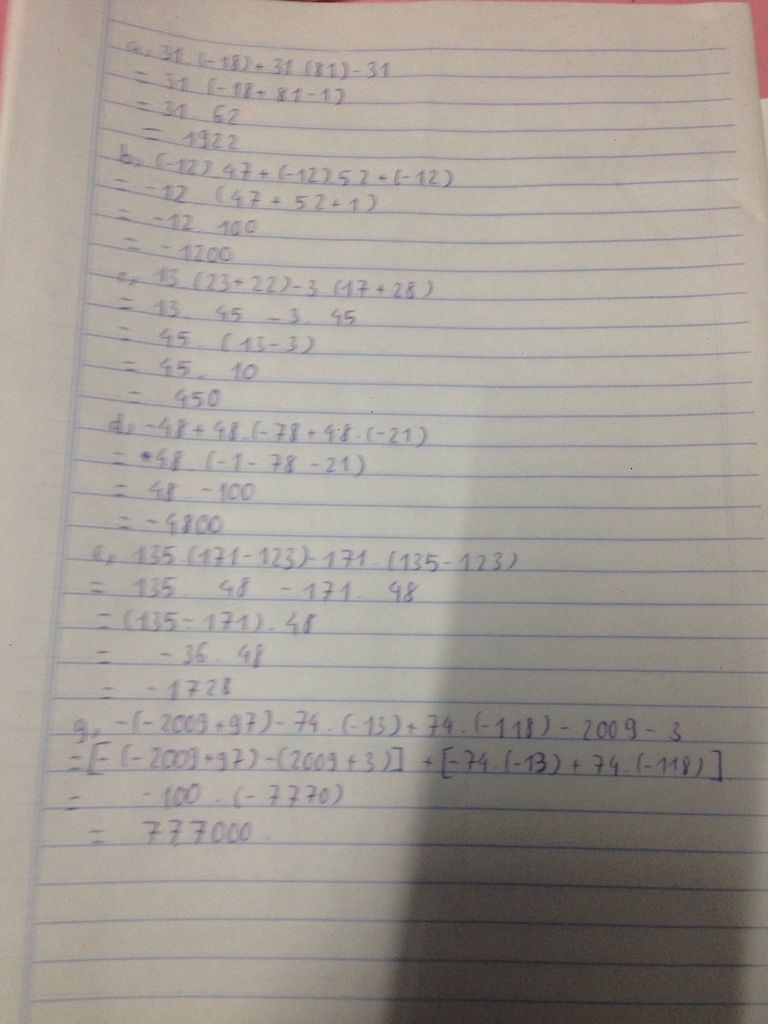 a, 31 (-18) + 31 (81) - 31
= 31 (-18 + 81 - 1)
= 31. 62
= 1922
b, (-12) 47 + (-12) 52 + (-12)
= -12 (47 + 52 + 1)
= -12. 100
= -1200
c, 13 (23 + 22) - 3 (17 + 28)
= 13. 45 - 3. 45
= 45. (13 - 3)
= 45. 10
= 450
d, -48 + 48. (-78 + 48. (-21)
= 48 (-1 - 78 - 21)
= 48 -100
= -4800
e, 135 (171 - 123) - 171. (135 - 123)
= 135. 48 - 171. 48
= (135 - 171). 48
= -36. 48
= -1728
g, -(-2009 + 97) - 74. (-13) + 74. (-118) - 2009 - 3
= [-(-2009 + 97) - (2009 + 3)] + [-74. (-13) + 74. (-118)]
= -100. (-7770)
= 777000.